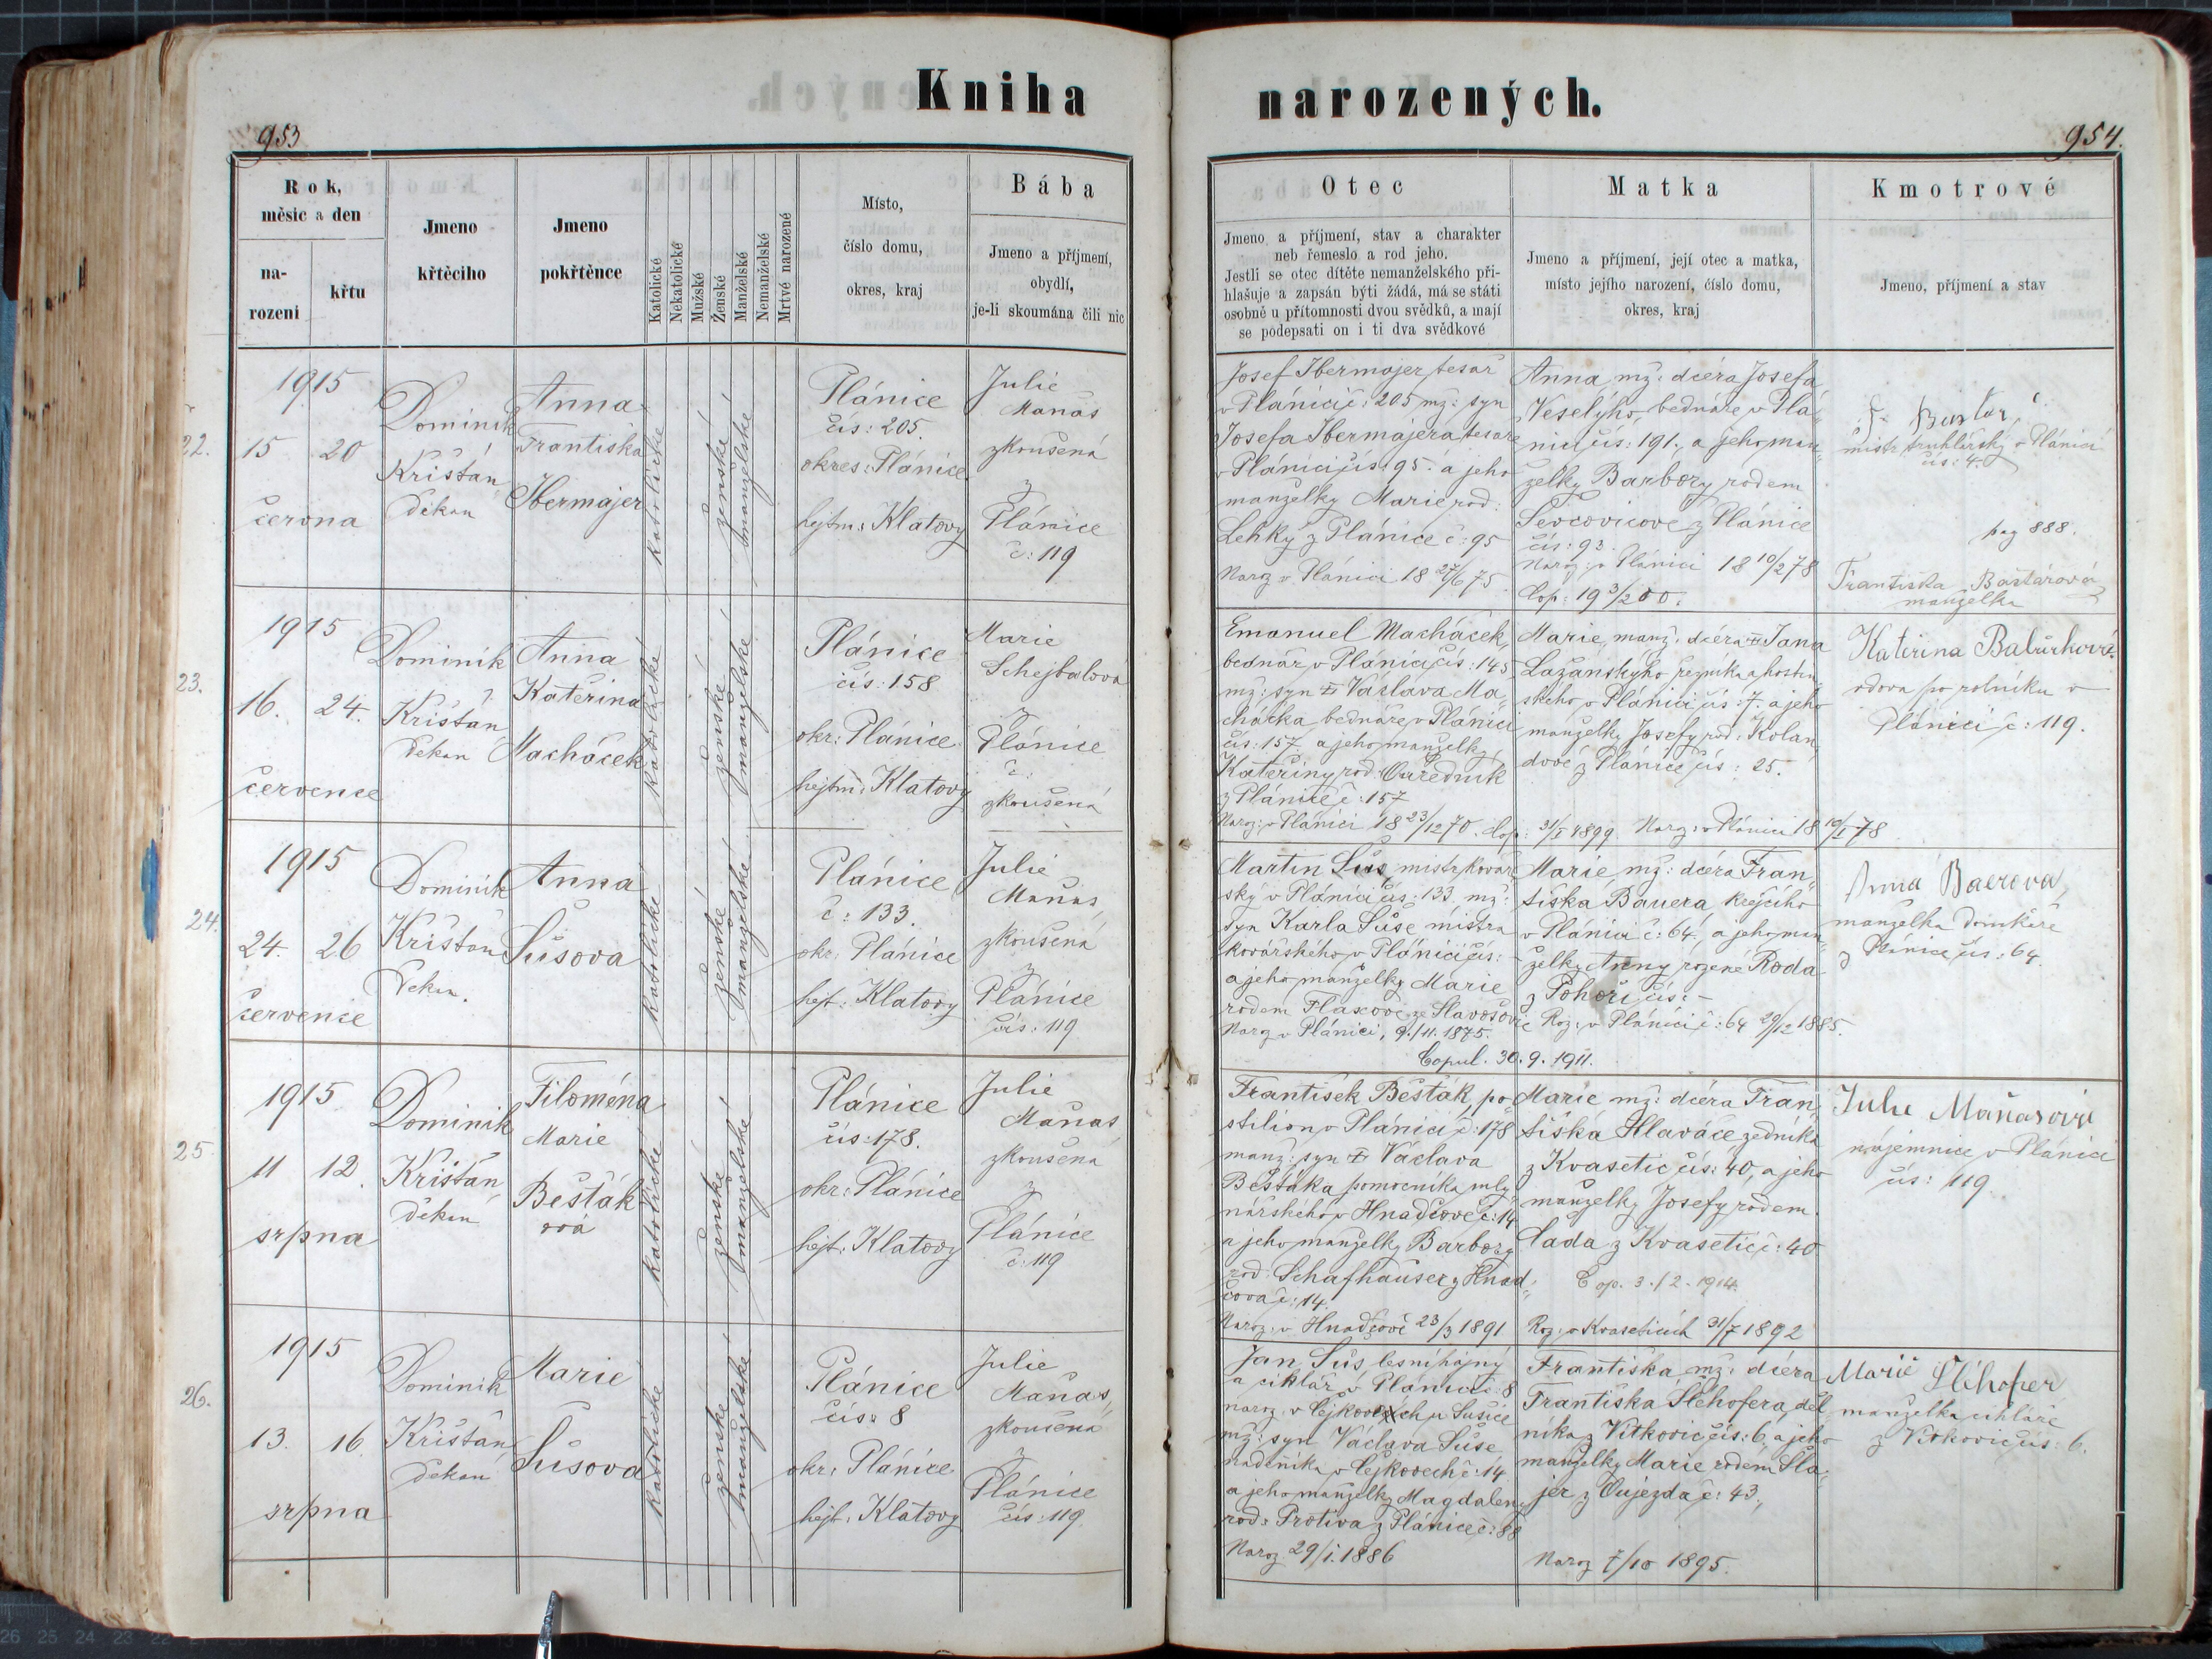 Kniha narozených.
953
954.
Rok,
měsíc a den
na-
rození
křtu
Jmeno
křtěcího
Jmeno
pokřtěnce
Katolické
Nekatolické
Mužské
Ženské
Manželské
Nemanželské
Mrtvé narozené
Místo,
číslo domu,
okres, kraj
Bába
Jmeno a příjmení,
obydlí,
je-li skoumána čili nic
Otec
Jmeno a příjmení, stav a charakter
neb řemeslo a rod jeho.
Jestli se otec dítěte nemanželského při-
hlašuje a zapsán býti žádá, má se státi
osobně u přítomnosti dvou svědků, a mají
se podepsati on i ti dva svědkové
Matka
Jmeno a příjmení, její otec a matka,
místo jejího narození, číslo domu,
okres, kraj
Kmotrové
Jmeno, příjmení a stav
22.
1915
15 20
června
Dominik
Křišťan
děkan
Anna
Františka
Ibermajer
katolické
ženské
manželské
Plánice
čís: 205.
okres: Plánice
hejtm: Klatovy
Julie
Maňas
zkoušená
z
Plánice
č: 119
Josef Ibermajer, tesař
v Plánici č: 205 mž: syn
Josefa Ibermajera, tesaře
v Plánici čís: 95. a jeho
manželky Marie rod:
Lehký z Plánice č: 95
Naroz v Plánici 18 27/6 75
Anna, mž: dcéra Josefa
Veselýho, bednáře v Plá-
nici čís: 191., a jeho man-
želky Barbory rodem
Ševčovicove z Plánice
čís: 93.
Naroz: v Plánici 18 10/2 78
Cop: 19 3/2 00.
mistr truhlářský v Plánici
čís: 4.
pag 888.
Františka Baštárová
manželka
23.
1915
16. 24.
července
Dominik
Křišťan
děkan
Anna
Kateřina
Macháček
katolické
ženské
manželské
Plánice
čís: 158
okr: Plánice
hejtm: Klatovy
Marie
Schejbalová
z
Plánice
č:
zkoušená
Emanuel Macháček,
bednář v Plánici, čís: 145
mž: syn † Václava Ma-
cháčka bednáře v Plánici
čís: 157 a jeho manželky
Kateřiny rod: Ouředník
z Plánice č: 157
Naroz: v Plánici 18 23/12 70. Cop: 31/I 1899.
Marie, manž: dcéra † Jana
Lažanskýho řezníka a hostin-
ského v Plánici čís: 7. a jeho
manželky Josefy rod: Kolan-
dové z Plánice čís: 25.
Naroz: v Plánici 18 19/I 78
Kateřina Balůrková
vdova po rolníku v
Plánici č: 119.
24.
1915
24. 26
července
Dominik
Křišťan
Děkan.
Anna
Šůsova
katolické
ženské
manželské
Plánice
č: 133.
okr: Plánice
hejt: Klatovy
Julie
Maňas
zkoušená
z
Plánice
čís: 119
Martin Šůs, mistr kovář-
ský v Plánici čís: 133. mž:
syn Karla Šůse mistra
kovářského v Plánici čís: -
a jeho manželky Marie
rodem Flaxové ze Slavošovic
Naroz v Plánici, 9./11. 1875.
Copul. 30. 9. 1911.
Marie, mž: dcéra Fran-
tiška Bauera krejčího
v Plánici č: 64., a jeho man-
želky Anny rozené Roda
z Pohoří čís: -
Roz: v Plánici č: 64 29/12 1885.
Anna Baerova,
manželka domkáře
z Plánice čís: 64.
25.
1915
11 12.
srpna
Dominik
Křišťan
děkan
Filoména
Marie
Bešťák-
ová
katolické
ženské
manželské
Plánice
čís: 178.
okr: Plánice
hejt: Klatovy
Julie
Maňas
zkoušená
z
Plánice
č: 119
František Bešťák, po-
stilion v Plánici č: 178
manž: syn † Václava
Bešťáka pomocníka mly-
nářského v Hnačově č: 14
a jeho manželky Barbory
rod: Schafhauser z Hnač-
ova č: 14.
Naroz: v Hnačově 23/3 1891
Marie mž: dcéra Fran-
tiška Hlaváče, zedníka
z Kvasetic čís: 40, a jeho
manželky Josefy rodem
Cada z Kvasetic č: 40
Cop. 3./2. 1914.
Roz: v Kvaseticích 31/7 1892
Julie Maňasová
nájemnice v Plánici
čís: 119
26.
1915
13. 16.
srpna
Dominik
Křišťan
děkan
Marie
Šůsova
katolické
ženské
manželské
Plánice
čís: 8
okr: Plánice
hejt: Klatovy
Julie
Maňas,
zkoušená
z
Plánice
čís: 119.
Jan Šůs, lesní hajný
a cihlář v Plánici č: 8
naroz. v Čejkovech u Sušice
mž: syn Václava Šůse
nádeníka v Čejkovech č: 14
a jeho manželky Magdaleny
rod: Protiva z Plánice č: 88
Naroz 29/I. 1886
Františka, mž: dcéra
Františka Šlehofera, děl-
níka z Vítkovic čís: 6, a jeho
manželky Marie rodem Šla-
jer z Oujezda č: 43.,
Naroz 7/10 1895.
Marie Šlehofer
manželka cihláře
z Vítkovic čís: 6.